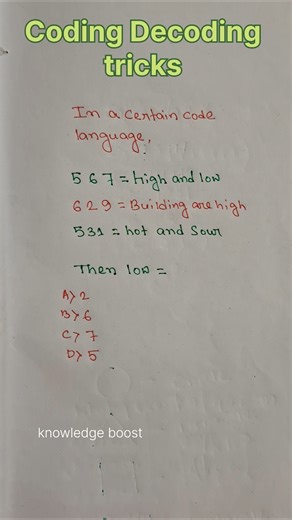 Coding Decoding
tricks
In a certain code
language,
5 6 7 = high and low
6 2 9 = Building are high
531 = hot and sour
Then low =
A> 2
B> 6
C> 7
D> 5
knowledge boost